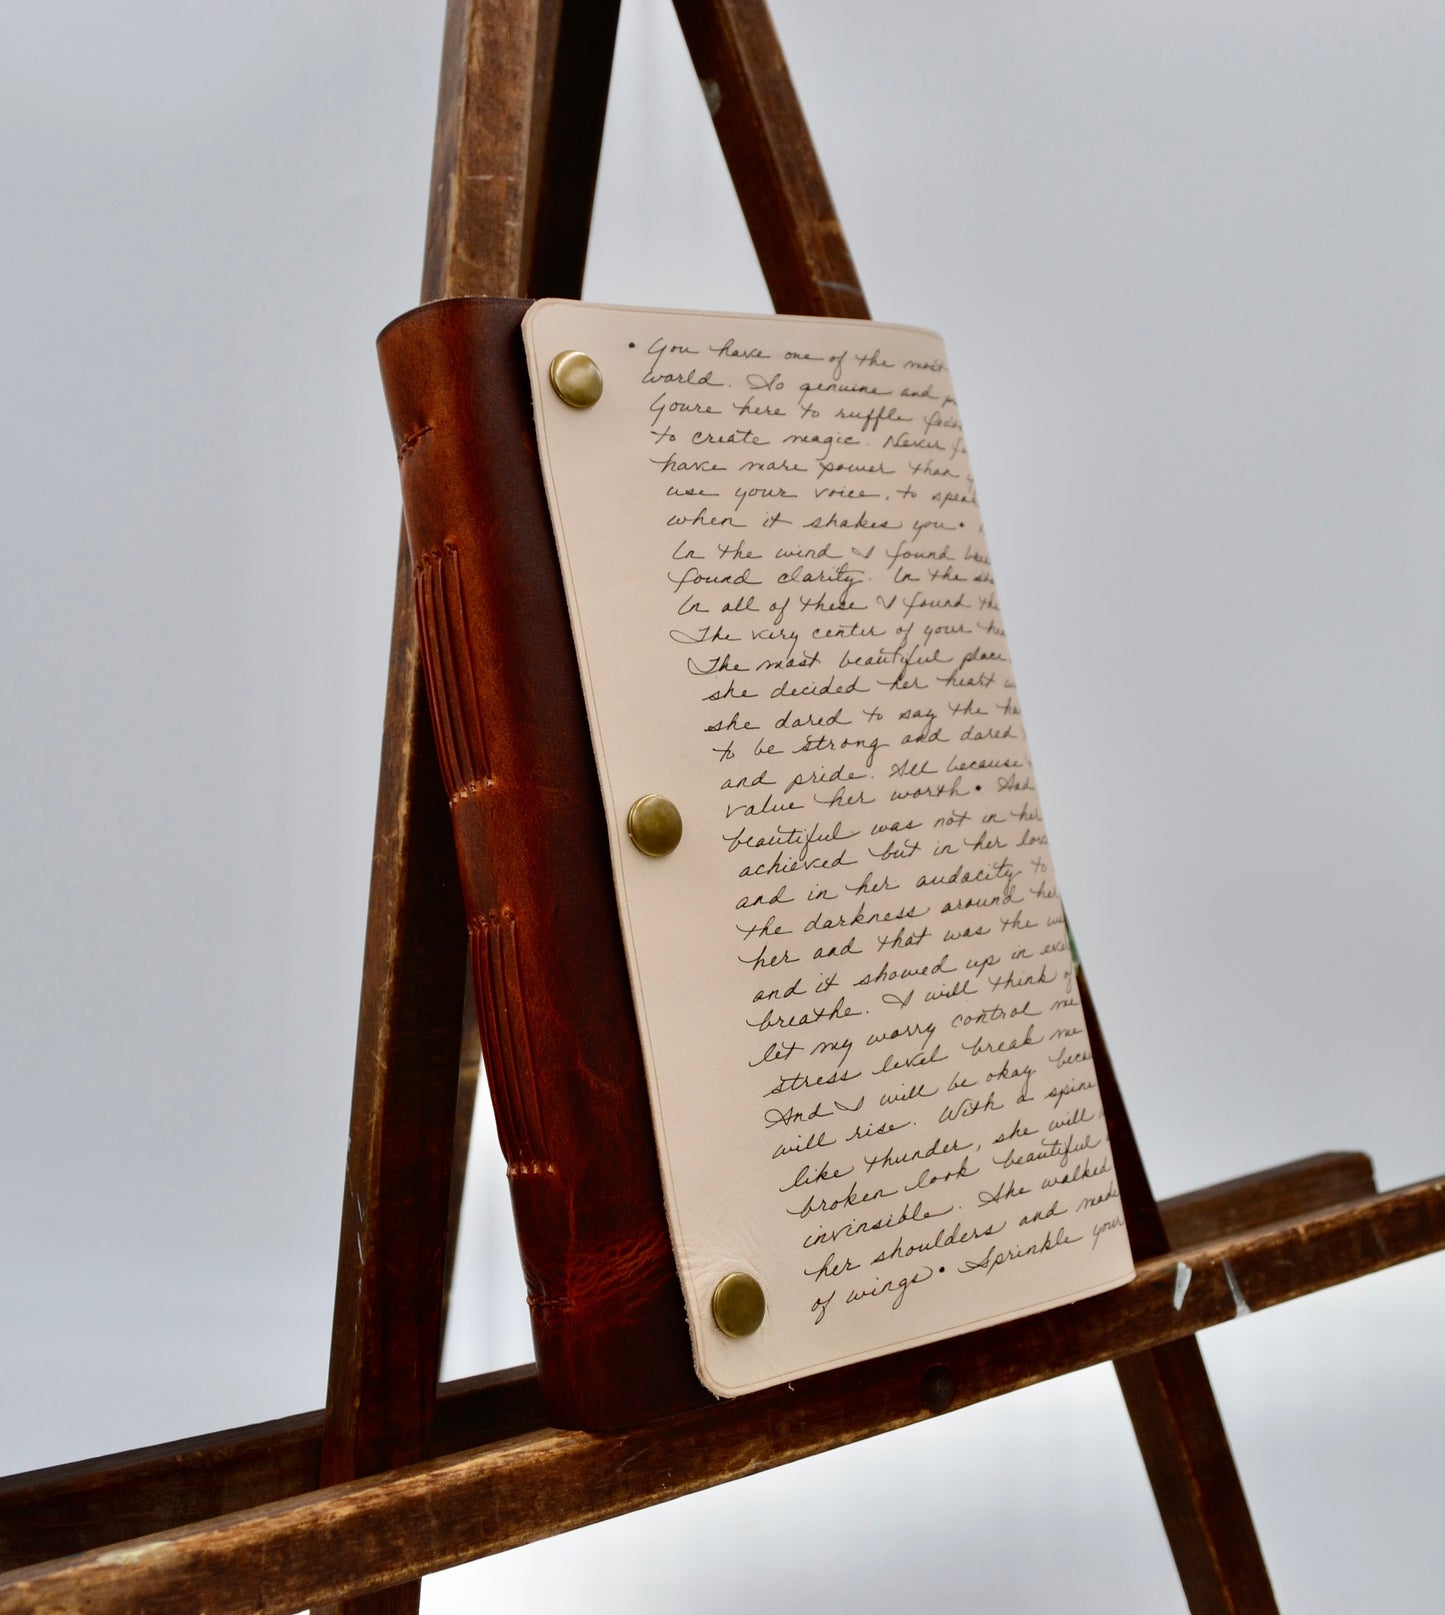 • You have one of the most
world. So genuine and
Youre here to ruffle
to create magic. Never
have more power than
use your voice, to speak
when it shakes you •
In the wind I found
found clarity. In the
In all of these I found the
The very center of your
The most beautiful place
she decided her heart
she dared to say the
to be strong and dared
and pride. All because
value her worth • And
beautiful was not in her
achieved but in her
and in her audacity to
the darkness around her
her and that was the
and it showed up in
breathe. I will think of
let my worry control me
stress level break me
And I will be okay
will rise. With a spine
like thunder, she will
broken look beautiful
invinsible. She walked
her shoulders and made
of wings • Sprinkle your